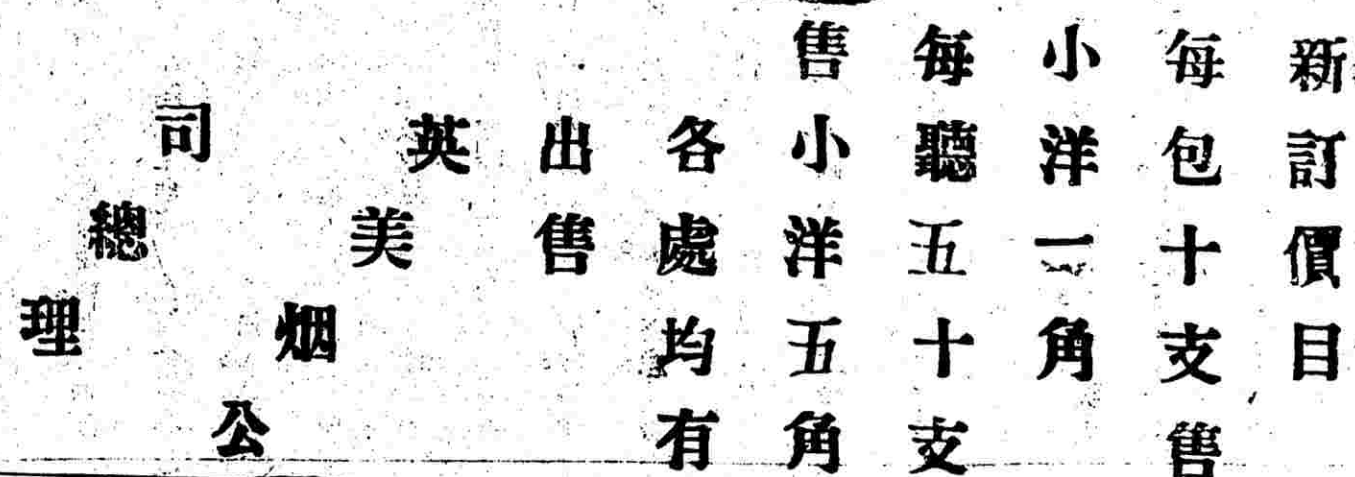 新訂價目
每包十支售
小洋一角
每聽五十支
售小洋五角
各處均有
出售
英美烟公司總理